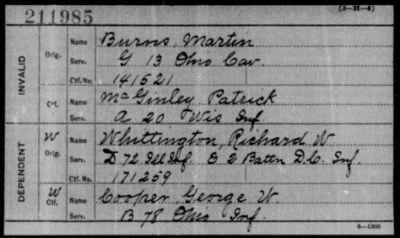 211985 (3-H-4)
INVALID
Orig. Name Burns, Martin
Serv. G 13 Ohio Cav.
Ctf. No. 141521
Ctf. Name McGinley Patrick
Serv. A 20 Wis Inf
DEPENDENT
W Orig. Name Whittington, Richard W
Serv. D 72 Ill Inf. O. 2 Batln D.C. Inf.
Ctf. No. 171259
W Ctf. Name Cooper, George W.
Serv. B 78 Ohio Inf.